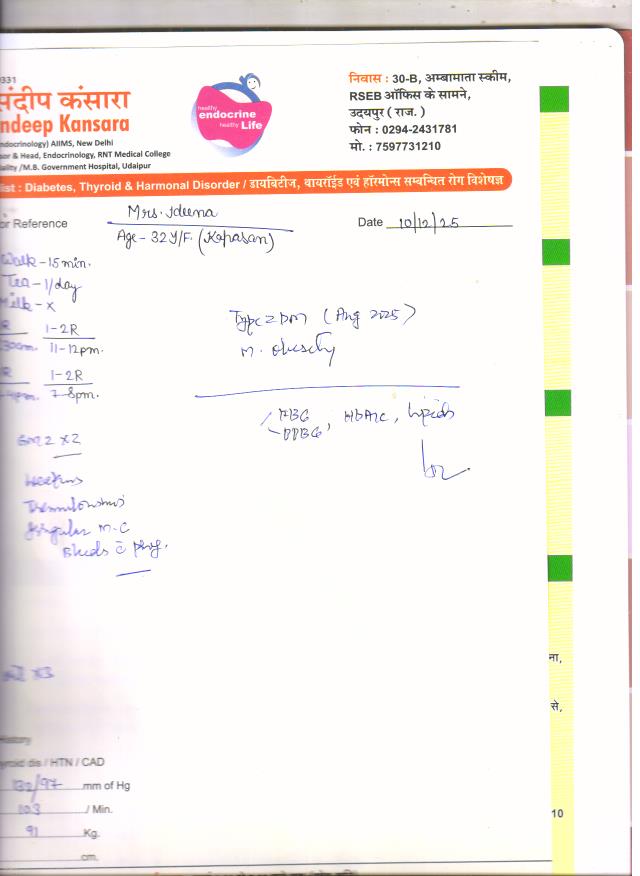 331
संदीप कंसारा
ndeep Kansara
ndocrinology) AIIMS, New Delhi
sor & Head, Endocrinology, RNT Medical College
ality /M.B. Government Hospital, Udaipur
healthy
endocrine
healthy Life
निवास : 30-B, अम्बामाता स्कीम,
RSEB ऑफिस के सामने,
उदयपुर ( राज. )
फोन : 0294-2431781
मो. : 7597731210
list : Diabetes, Thyroid & Harmonal Disorder / डायबिटीज, थायरॉईड एवं हॉरमोन्स सम्बन्धित रोग विशेषज्ञ
or Reference
Mrs. Ideena
Date 10/12/25
Age - 32 Y/F. (Kapasan)
Walk - 15 min.
Tea - 1/day
Milk - x
1-2R
30am. 11-12pm.
1-2R
4pm. 7-8pm.
Type 2 DM ( Aug 2025 )
m. obesity
FBG
PPBG, HbA1c, Lipids
x2
Irregular M-C
x3
History
yroid dis / HTN / CAD
132/97 mm of Hg
103 / Min.
91 Kg.
cm.
ना,
से,
10